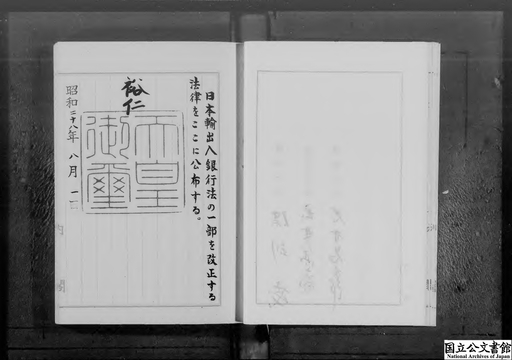 日本輸出入銀行法の一部を改正する
法律をここに公布する。
裕仁
天皇
御璽
昭和二十八年 八月 一日
内閣
国立公文書館
National Archives of Japan